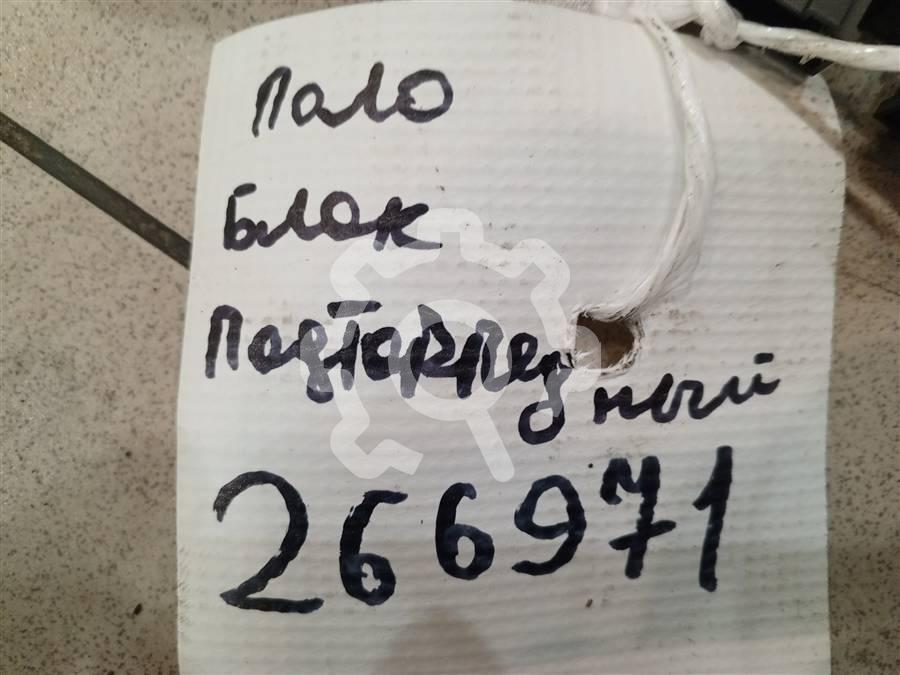 Поло
Блок
Подторпедный
266971